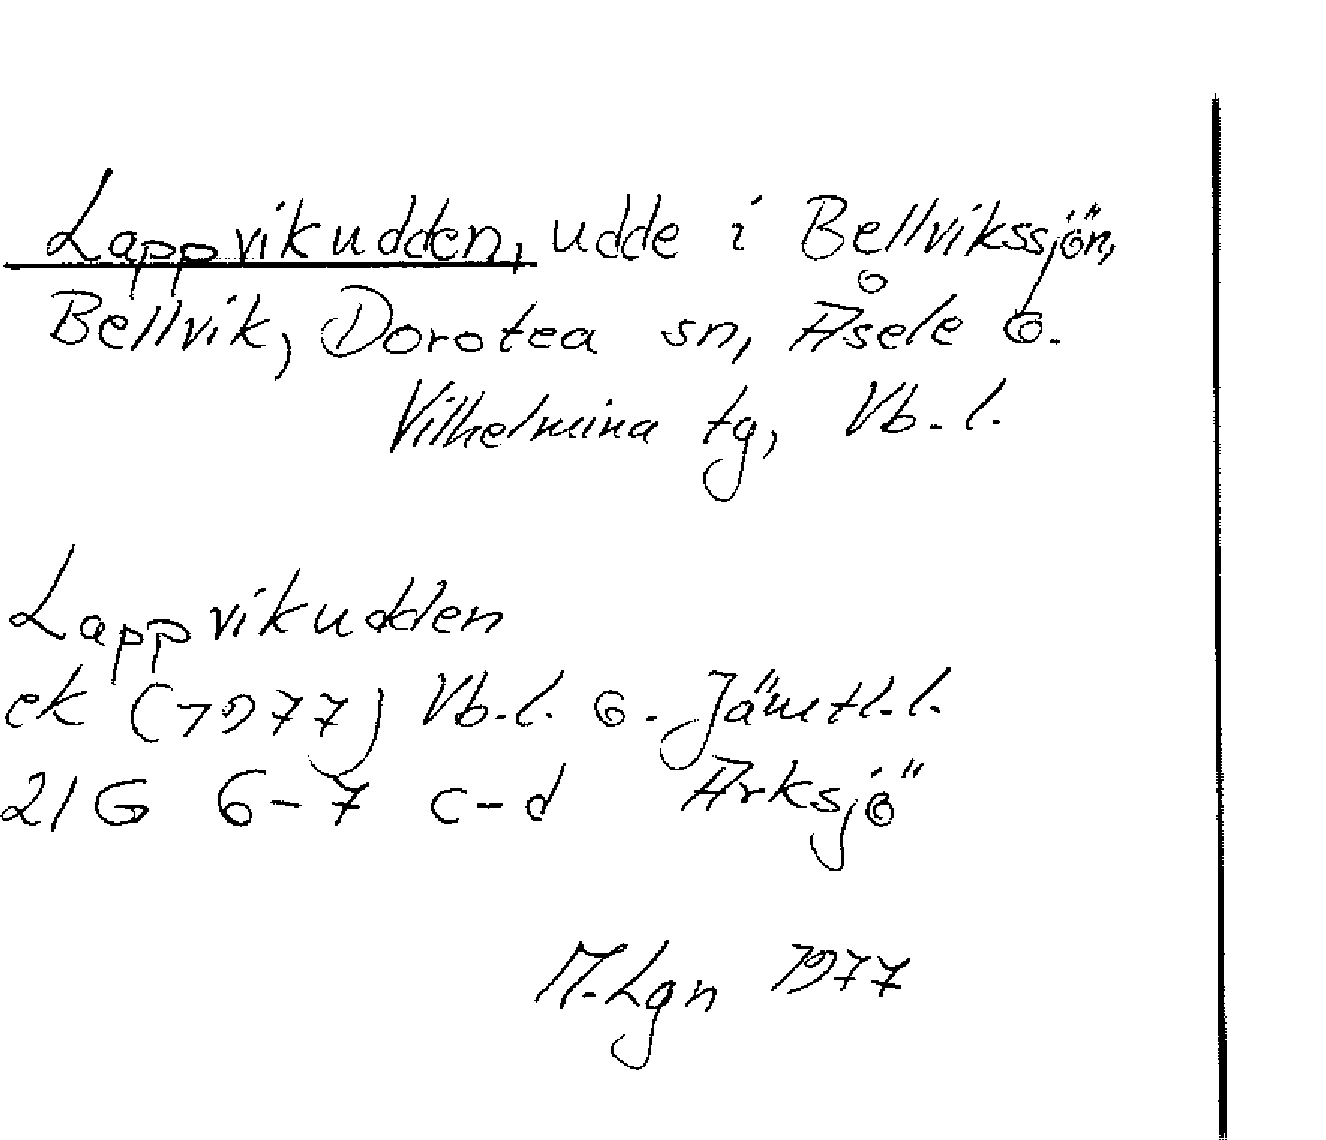 Lappvikudden, udde i Bellvikssjön,
Bellvik, Dorotea sn, Åsele o.
Vilhelmina tg, Vb. l.
Lappvikudden
ek (1977) Vb. l. o. Jämtl. l.
21G 6-7 c-d Arksjö
M. Lgn 1977